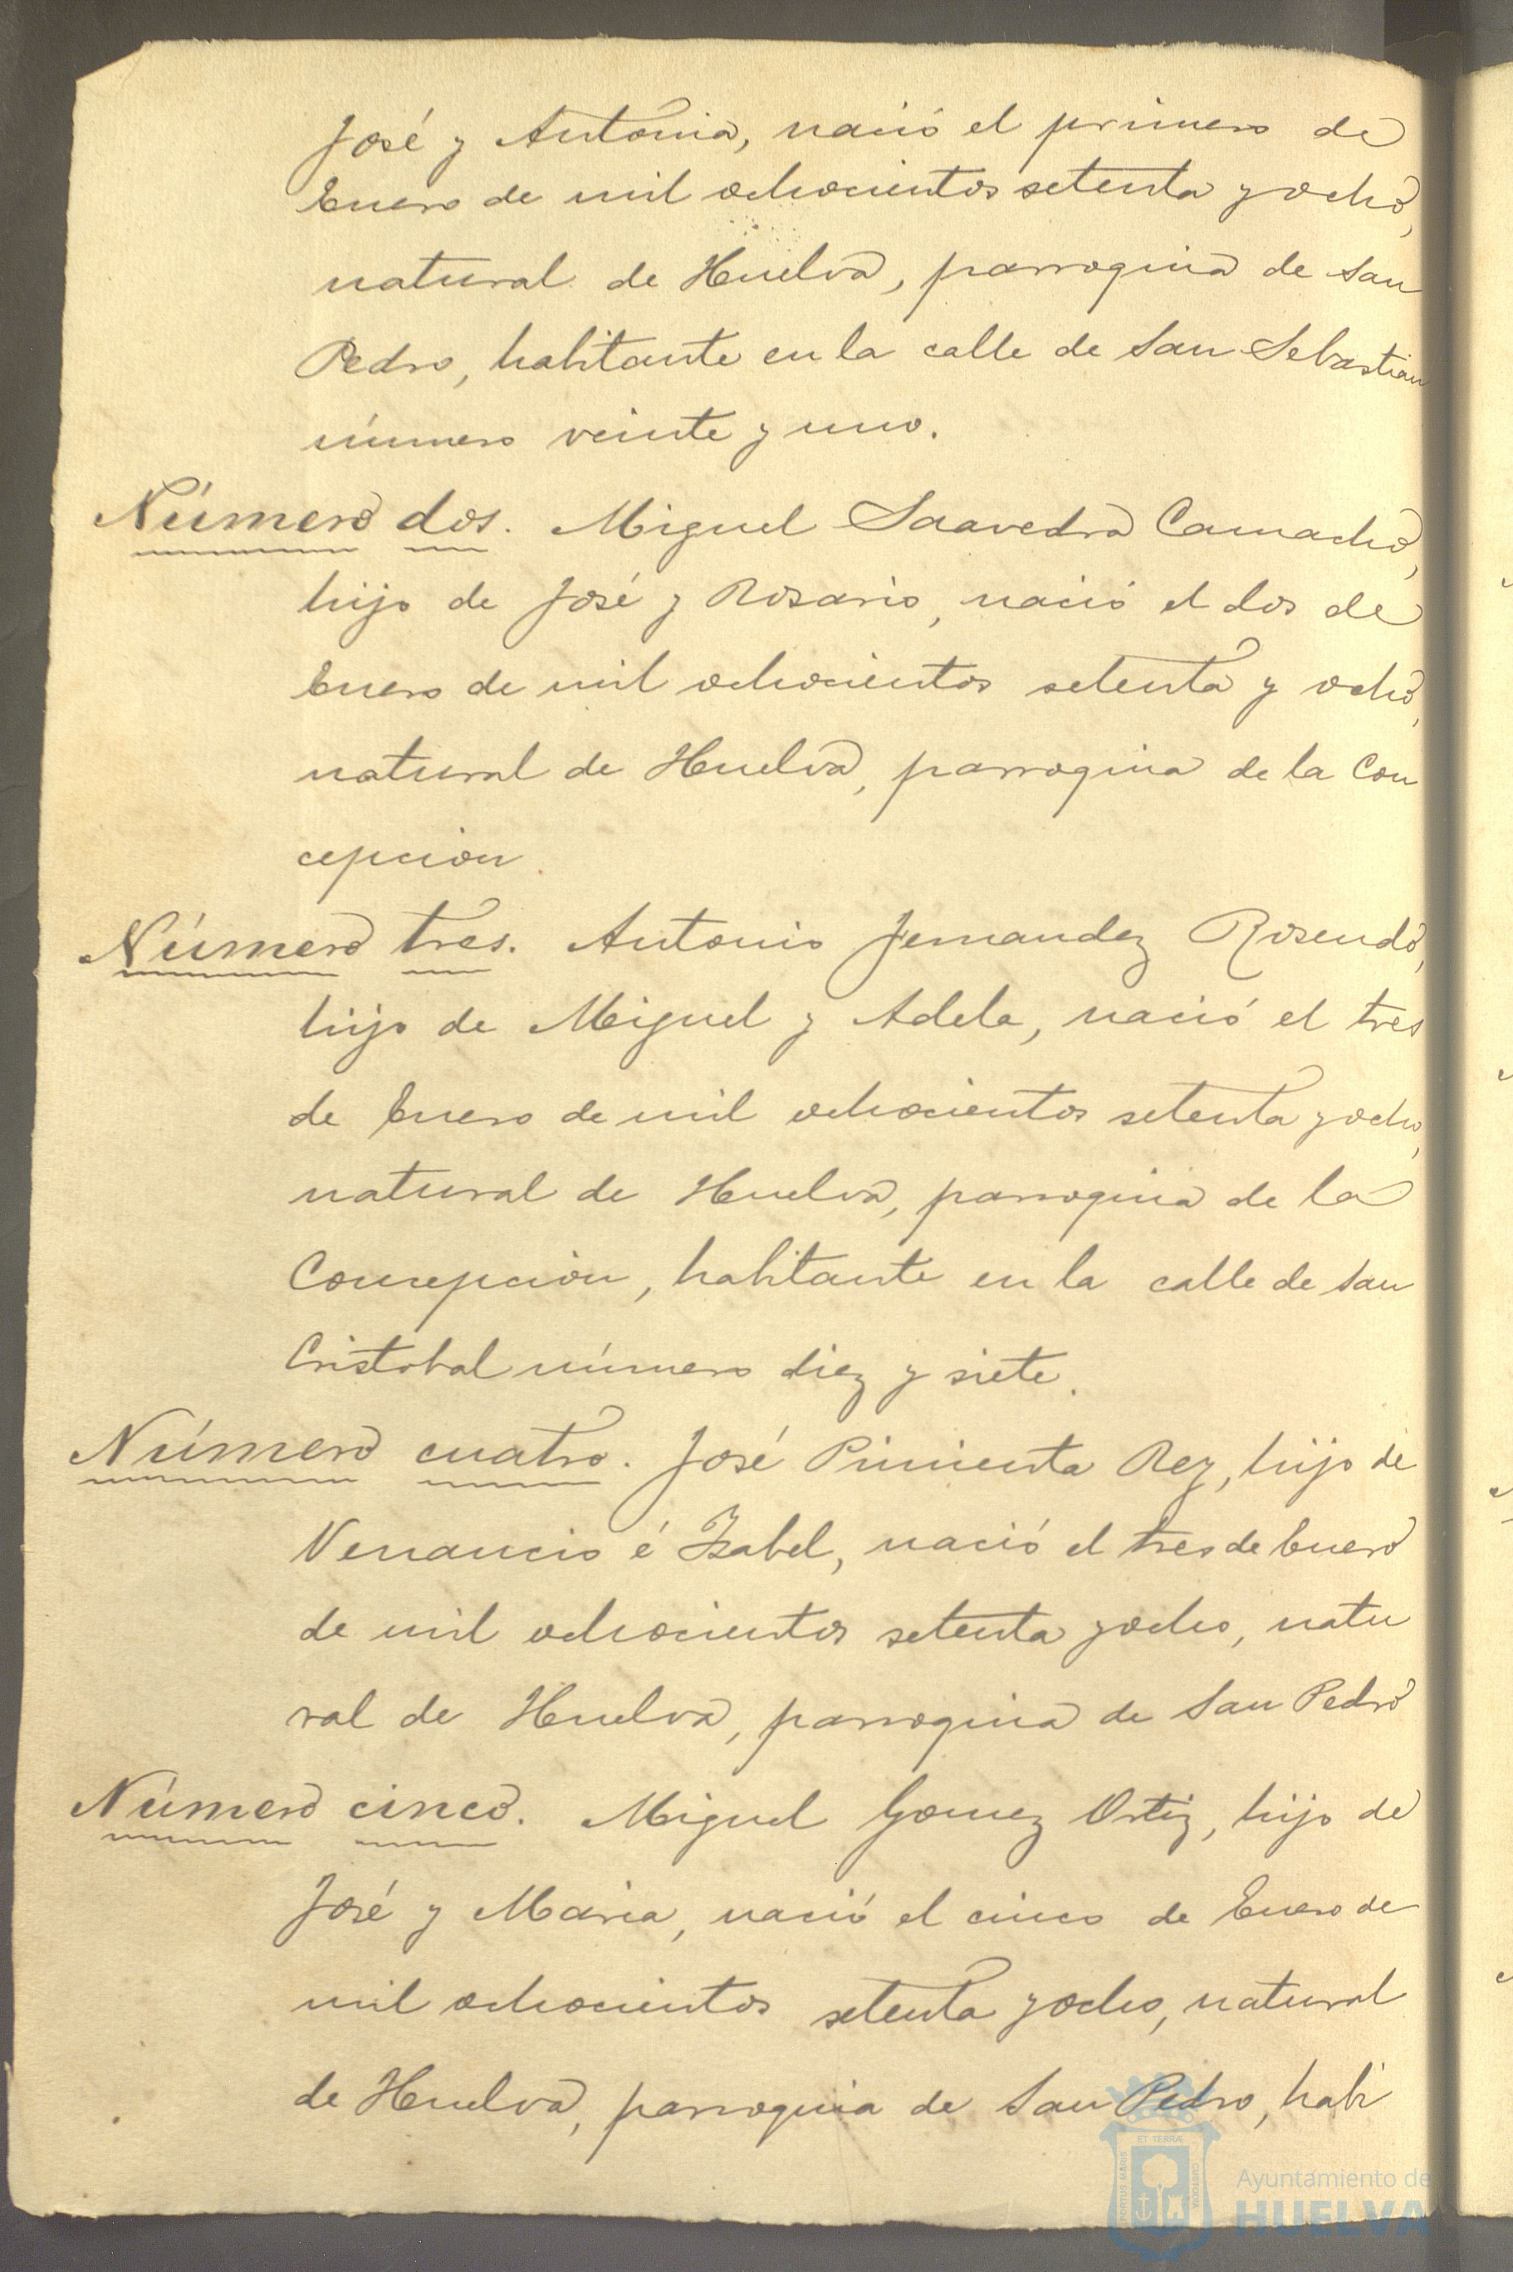 José y Antonia, nació el primero de
Enero de mil ochocientos setenta y ocho,
natural de Huelva, parroquia de San
Pedro, habitante en la calle de San Sebastian
número veinte y uno.
Número dos. Miguel Saavedra Camacho,
hijo de José y Rosario, nació el dos de
Enero de mil ochocientos setenta y ocho,
natural de Huelva, parroquia de la Con
cepcion.
Número tres. Antonio Fernandez Rosendo,
hijo de Miguel y Adela, nació el tres
de Enero de mil ochocientos setenta y ocho,
natural de Huelva, parroquia de la
Concepcion, habitante en la calle de San
Cristobal número diez y siete.
Número cuatro. José Pimienta Rey, hijo de
Venancio é Isabel, nació el tres de Enero
de mil ochocientos setenta y ocho, natu
ral de Huelva, parroquia de San Pedro
Número cinco. Miguel Gomez Ortiz, hijo de
José y Maria, nació el cinco de Enero de
mil ochocientos setenta y ocho, natural
de Huelva, parroquia de San Pedro, habi
PORTUS MARIS ET TERRÆ CUSTODIA
Ayuntamiento de
HUELVA